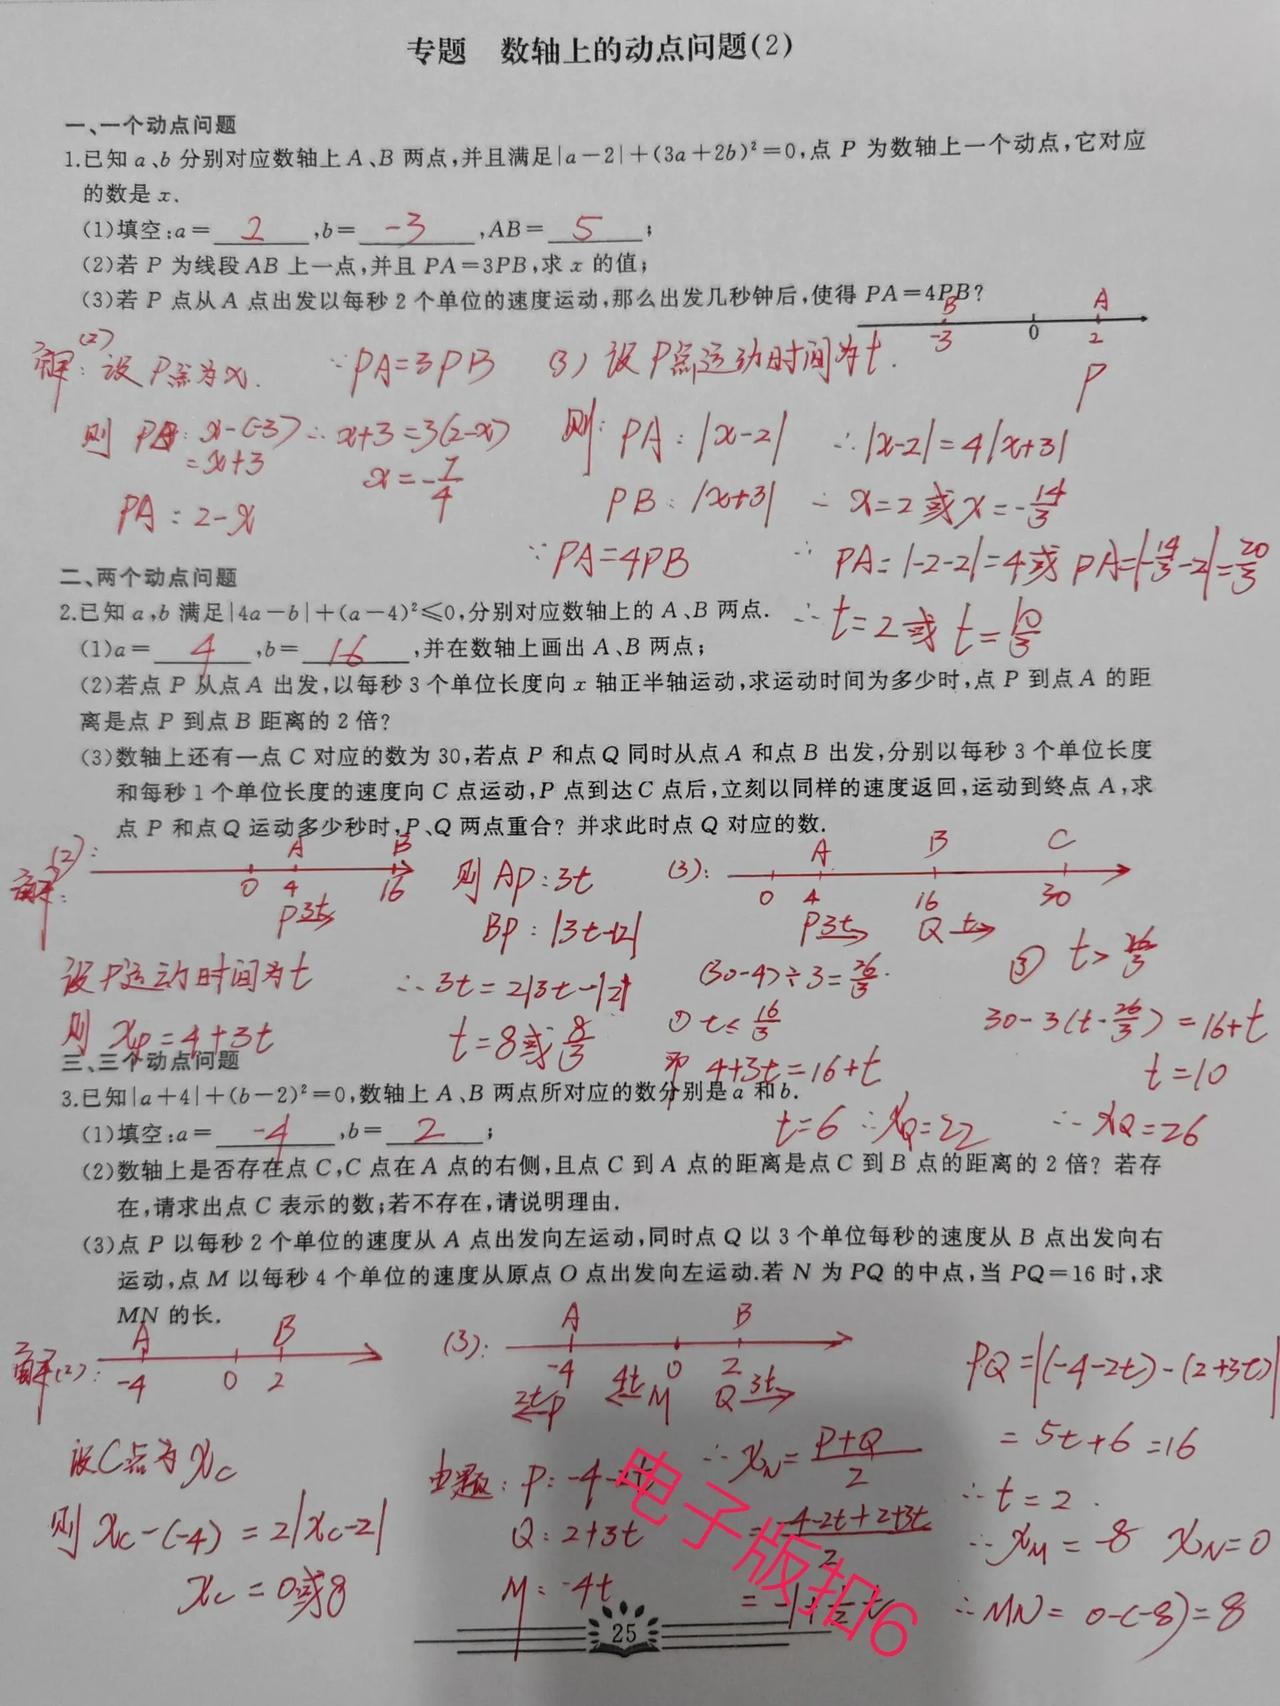 专题 数轴上的动点问题(2)
一、一个动点问题
1.已知a、b分别对应数轴上A、B两点,并且满足|a-2|+(3a+2b)²=0,点P为数轴上一个动点,它对应
的数是x.
(1)填空:a=2,b=-3,AB=5;
(2)若P为线段AB上一点,并且PA=3PB,求x的值;
(3)若P点从A点出发以每秒2个单位的速度运动,那么出发几秒钟后,使得PA=4PB?
B A
-3 0 2
P
解:(2) 设P点为x. ∵PA=3PB
则 PB: x-(-3) ∴x+3=3(2-x)
=x+3 x=-7/4
PA:2-x
(3)设P点运动时间为t.
则:PA:|x-2| ∴|x-2|=4|x+3|
PB:|x+3| ∴x=2或x=-14/3
∵PA=4PB ∴PA=|-2-2|=4或PA=|-14/3-2|=20/3
∴t=2或t=10/3
二、两个动点问题
2.已知a,b满足|4a-b|+(a-4)²≤0,分别对应数轴上的A、B两点.
(1)a=4,b=16,并在数轴上画出A、B两点;
(2)若点P从点A出发,以每秒3个单位长度向x轴正半轴运动,求运动时间为多少时,点P到点A的距
离是点P到点B距离的2倍?
(3)数轴上还有一点C对应的数为30,若点P和点Q同时从点A和点B出发,分别以每秒3个单位长度
和每秒1个单位长度的速度向C点运动,P点到达C点后,立刻以同样的速度返回,运动到终点A,求
点P和点Q运动多少秒时,P、Q两点重合?并求此时点Q对应的数.
解:(2):
A B
0 4 16
P3t
设P运动时间为t
则 xP=4+3t
则AP:3t
BP:|3t-12|
∴3t=2|3t-12|
t=8或8/3
(3):
A B C
0 4 16 30
P3t Q t
(30-4)÷3=26/3.
①t≤
即 4+3t=16+t
t=6 ∴xQ=22
② t>26/3
30-3(t-26/3)=16+t
t=10
∴xQ=26
三、三个动点问题
3.已知|a+4|+(b-2)²=0,数轴上A、B两点所对应的数分别是a和b.
(1)填空:a=-4,b=2;
(2)数轴上是否存在点C,C点在A点的右侧,且点C到A点的距离是点C到B点的距离的2倍?若存
在,请求出点C表示的数;若不存在,请说明理由.
(3)点P以每秒2个单位的速度从A点出发向左运动,同时点Q以3个单位每秒的速度从B点出发向右
运动,点M以每秒4个单位的速度从原点O点出发向左运动.若N为PQ的中点,当PQ=16时,求
MN的长.
解(2):
A B
-4 0 2
设C点为xC
则xC-(-4)=2|xC-2|
xC=0或8
(3):
A B
-4 0 2
2t P 4t M Q 3t
由题:P:-4-2t
Q:2+3t
M:-4t
∴xN=P+Q/2
=-4-2t+2+3t/2
=-1+1/2t
PQ=|(-4-2t)-(2+3t)|
=5t+6=16
∴t=2.
∴xM=-8 xN=0
∴MN=0-(-8)=8
电子版扣6
25